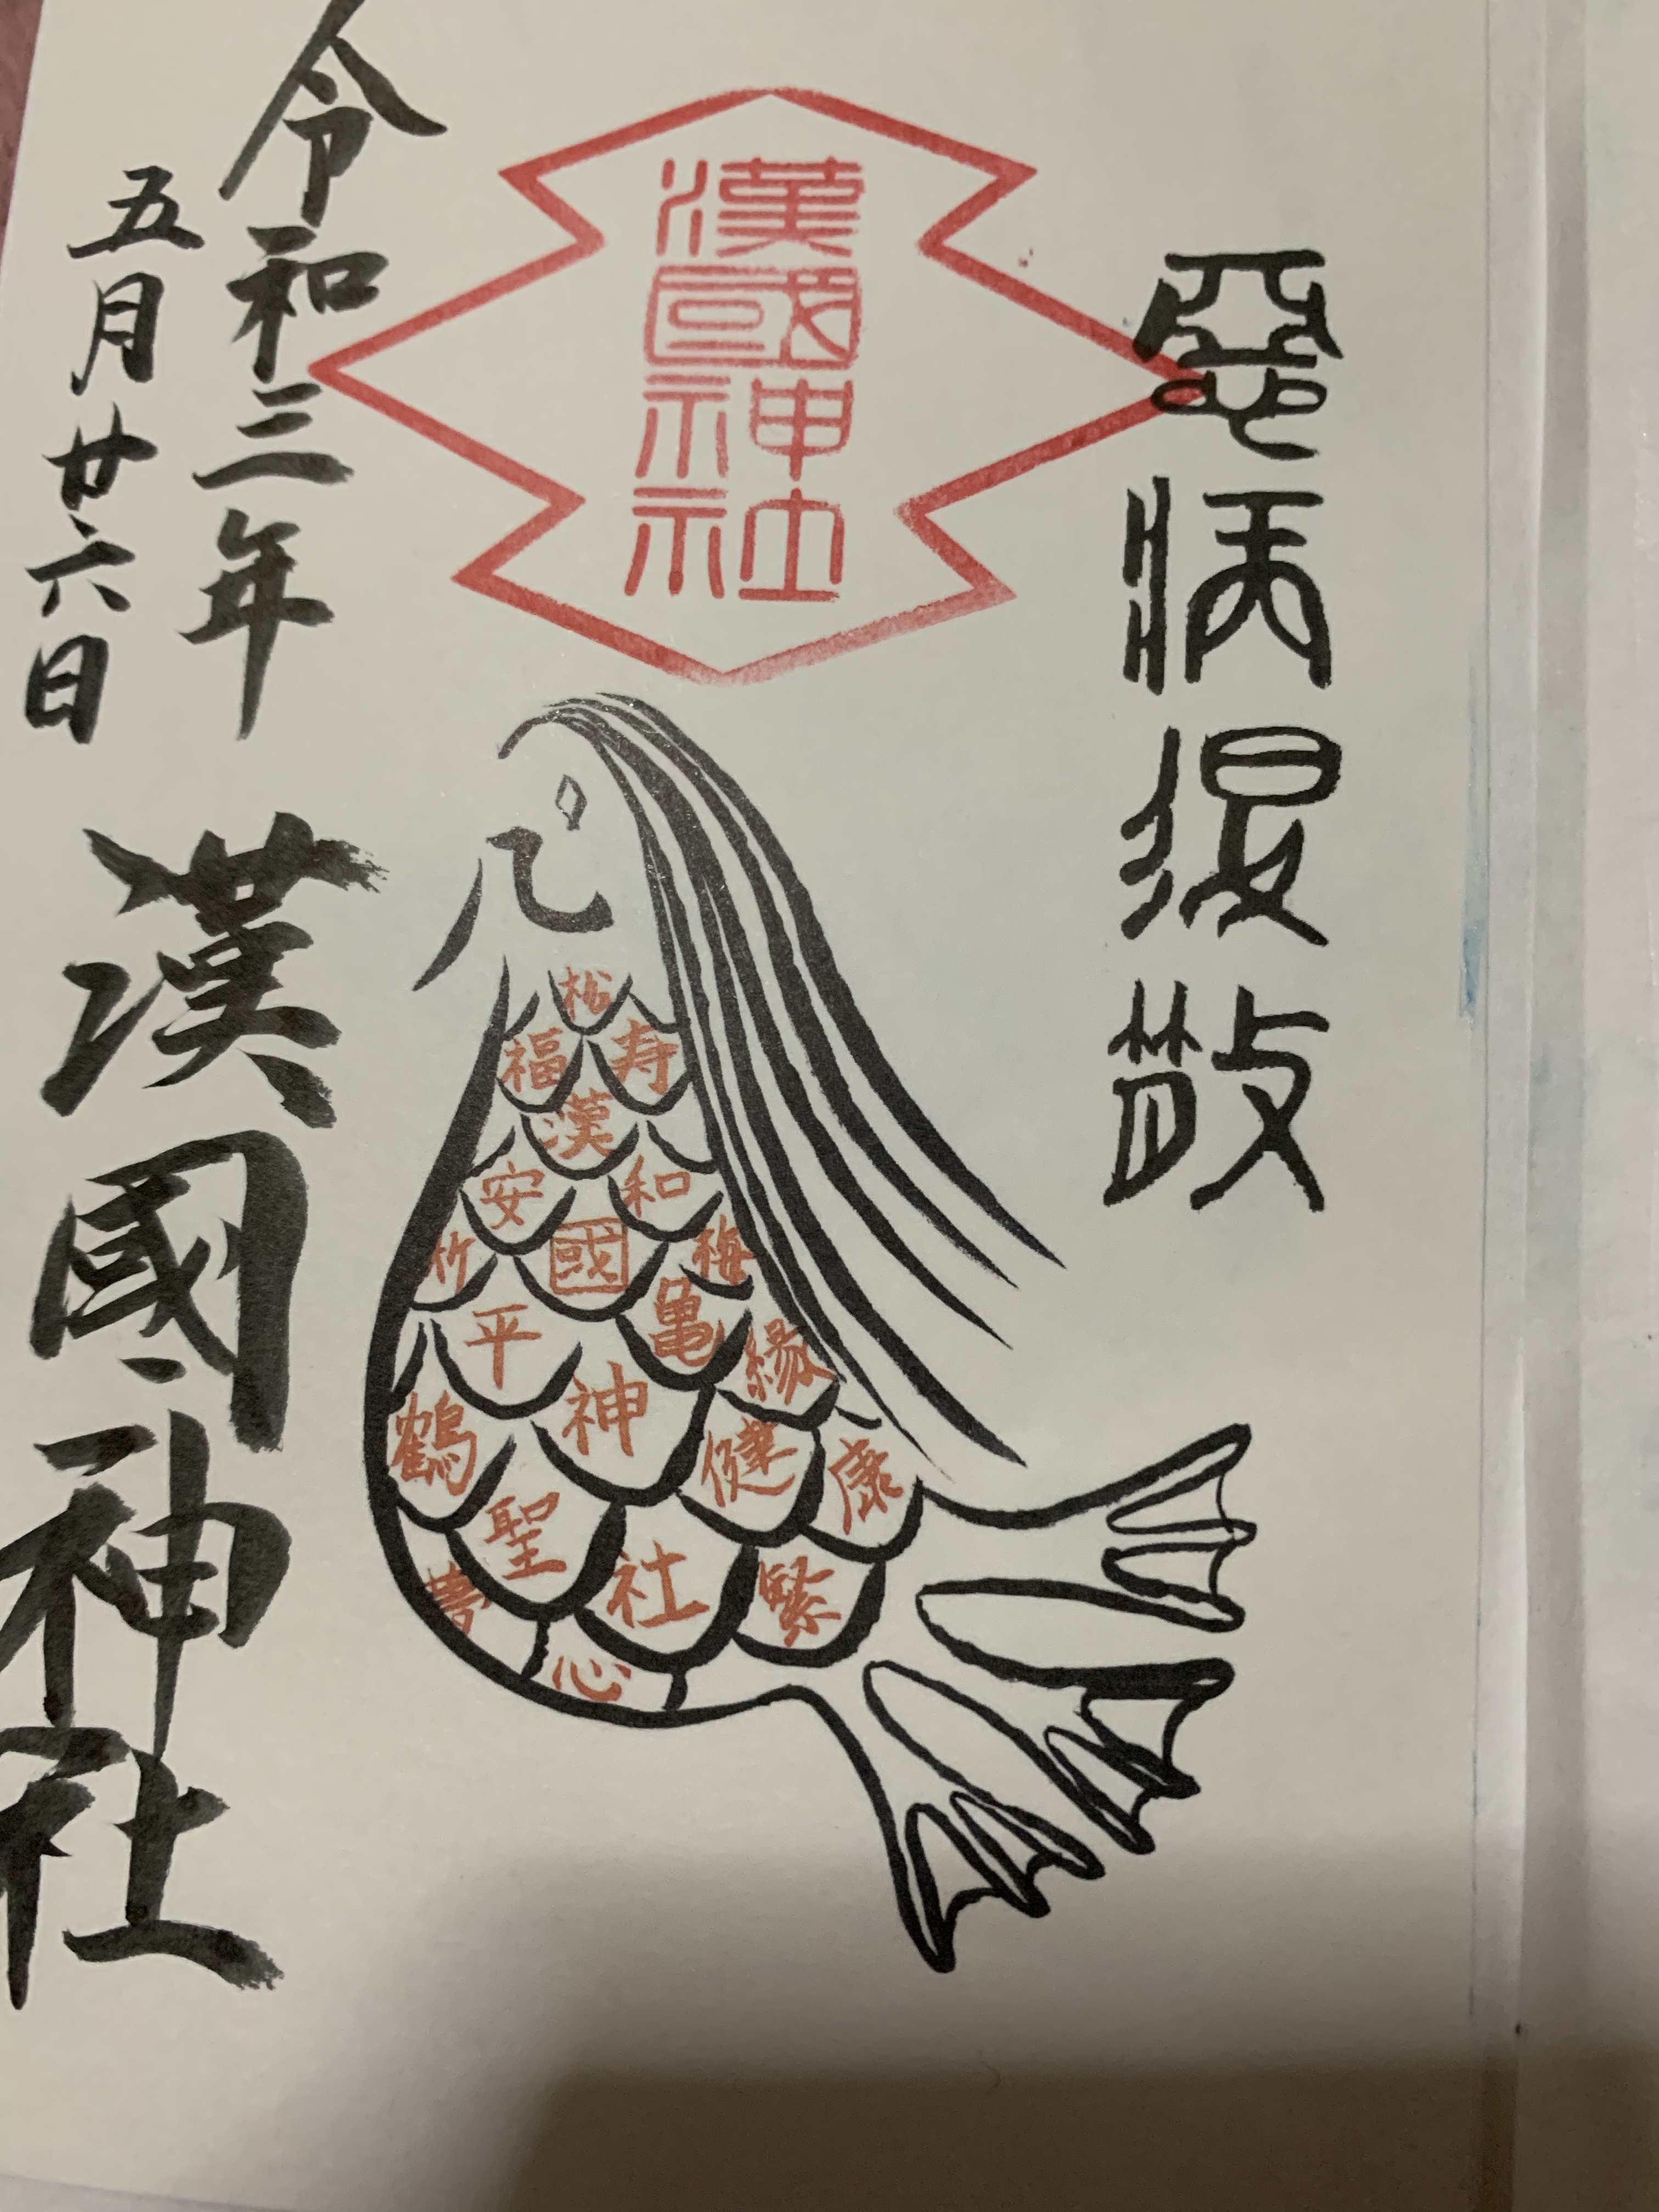 惡病退散
漢國神社
松
福
寿
漢
安
和
竹
國
梅
平
亀
縁
鶴
神
健
康
聖
社
繁
夢
心
令和三年
五月廿六日
漢國神社